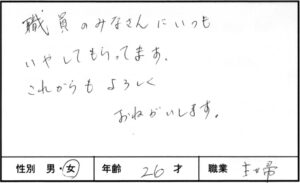 職員のみなさんにいつも
いやしてもらってます.
これからもよろしく
おねがいします。
性別 男・女 年齢 26 才 職業 主婦